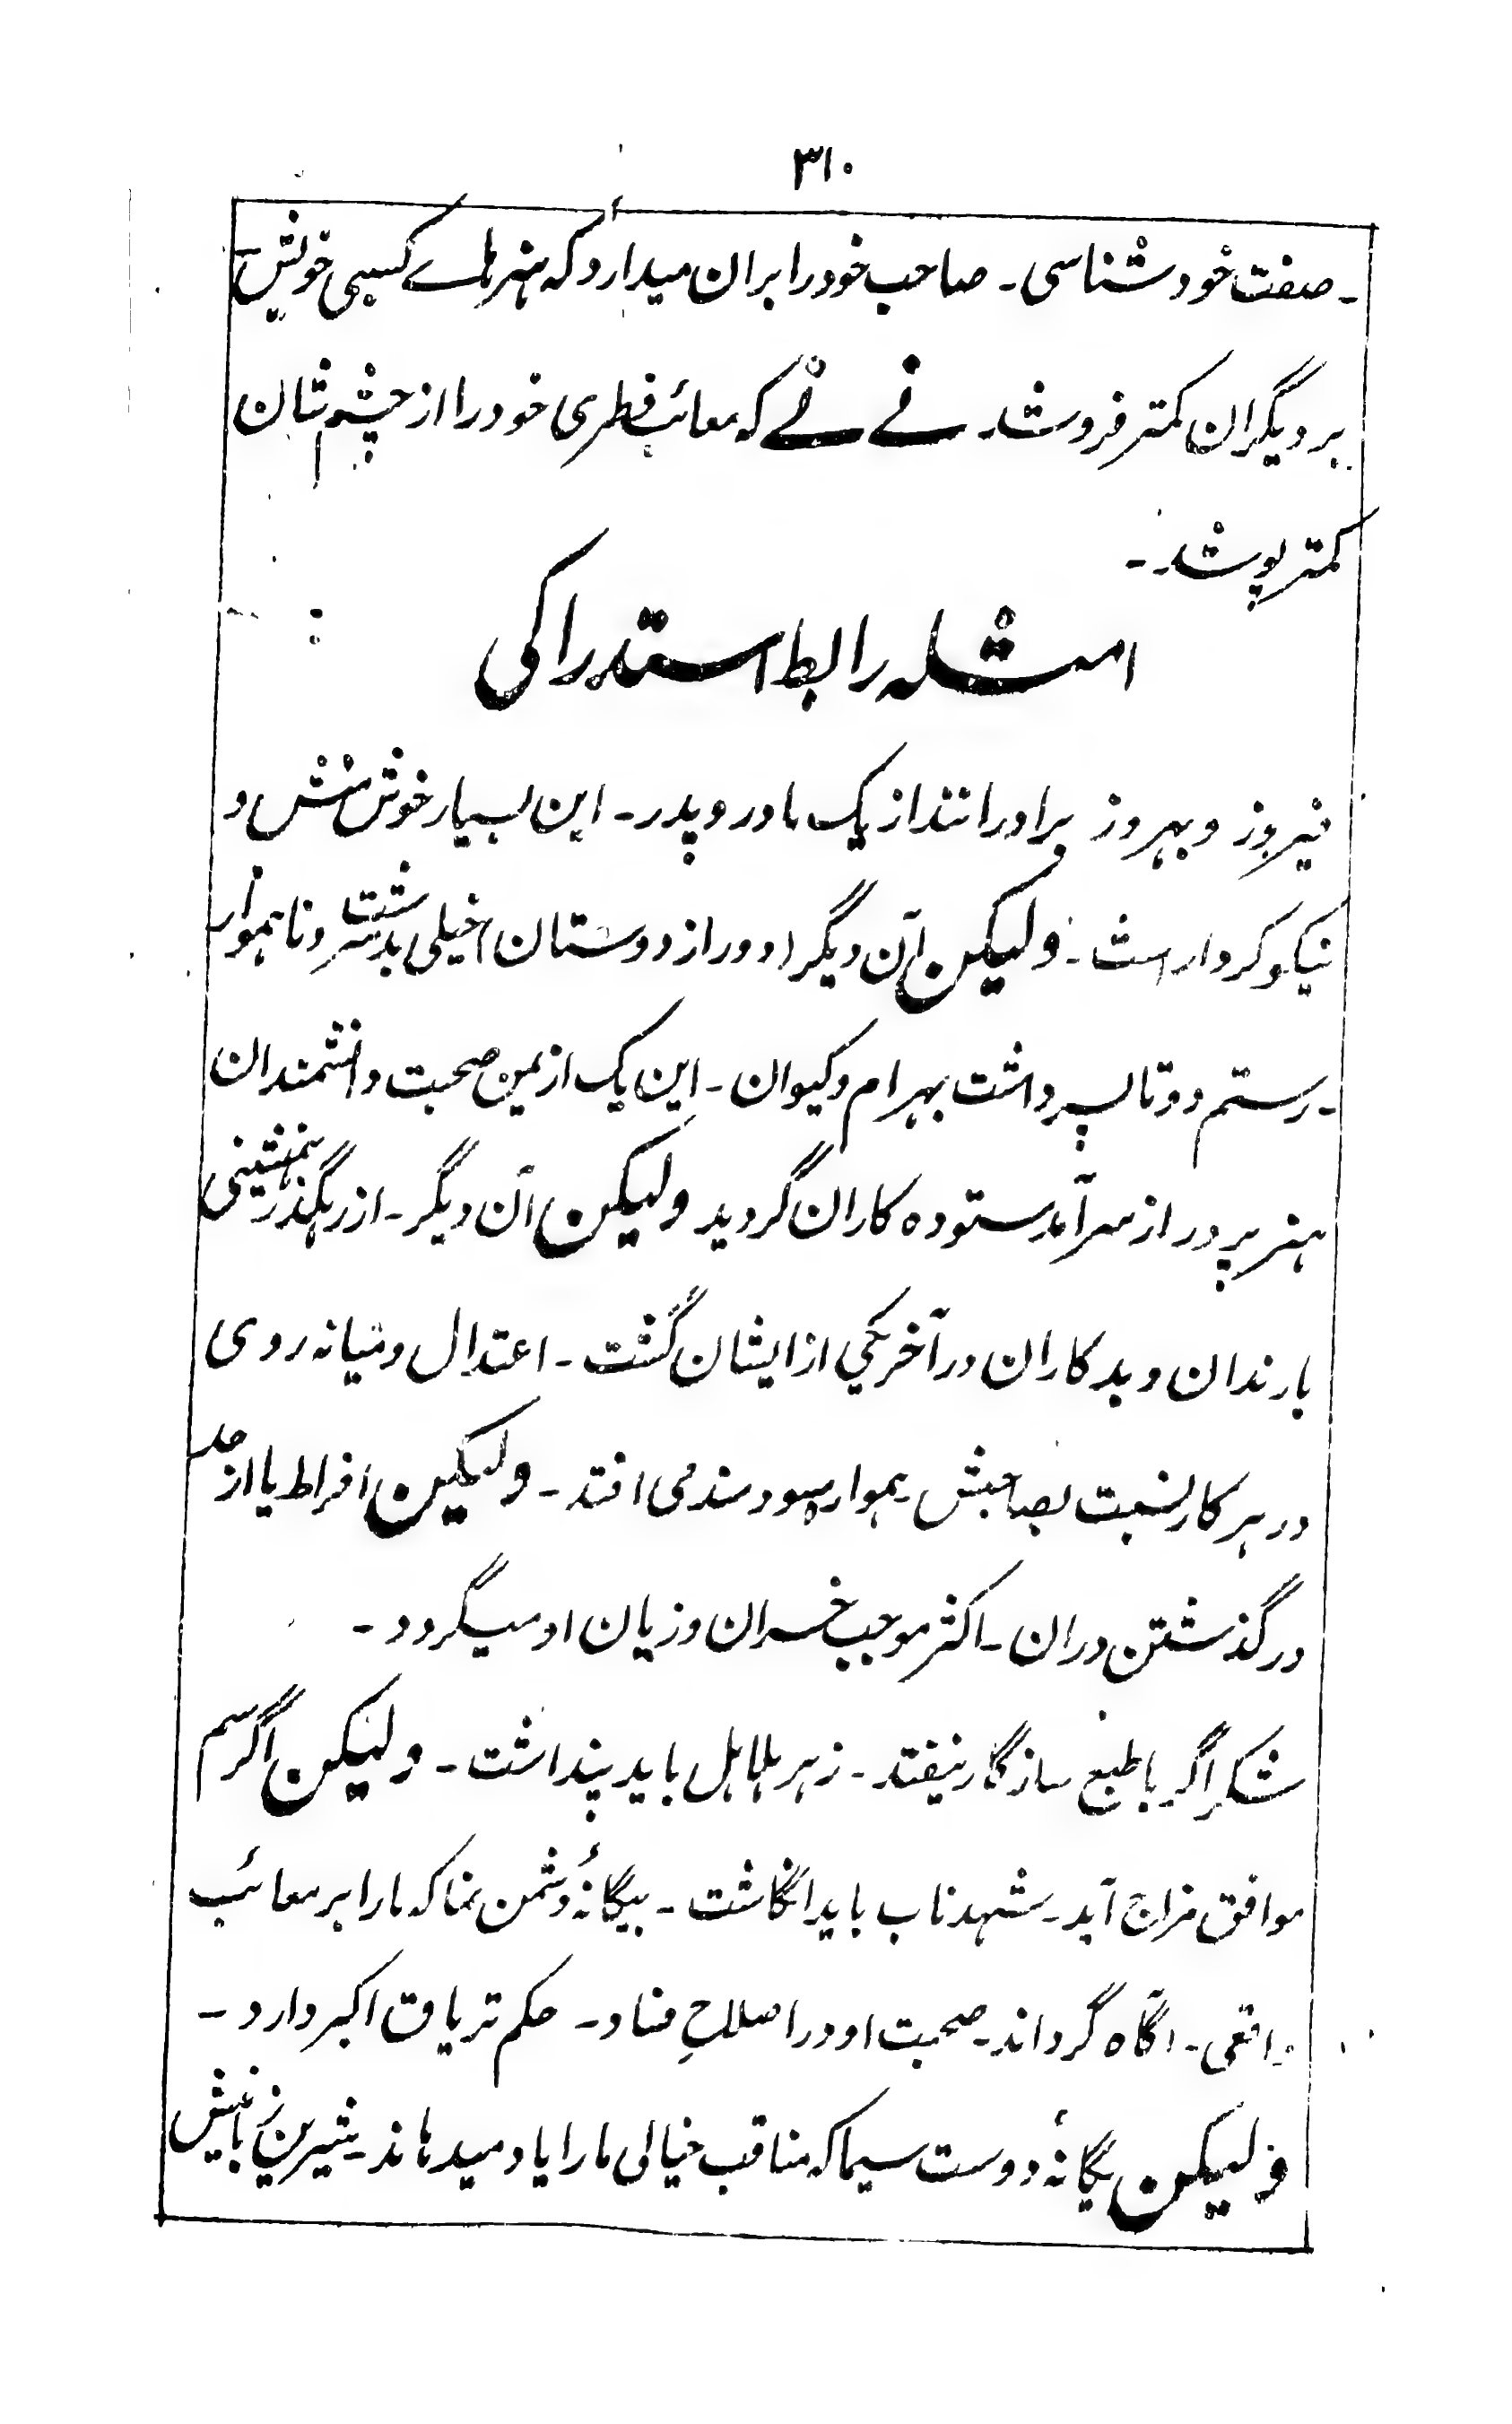 ۳۱۰
ـ صفت خود شناسی ـ صاحب خود را بران میدارد که هنرهاے کسبی خویش
بر دیگران کمتر فروشد ـ نے نے که معائب فطری خود را از چشم شان
کمتر پوشد ـ
امثلہ رابط استدراکی
فیروز و بهروز برادرانند از یک مادر و پدر ـ این بسیار خوش منش و
نیکو کردار است ـ ولیکن آن دیگر (دور از دوستان) خیلی بد سرشت و ناهموار
ـ رستم دو تا پسر داشت بهرام و کیوان ـ این یک از یمن صحبت دانشمندان
هنر پرور از سرآمد ستوده کاران گردید ولیکن آن دیگر ـ از رهگذر همنشینی
با رندان و بدکاران در آخر یکی از ایشان گشت ـ اعتدال و میانه روی
در هر کار نسبت بصاحبش همواره سودمند می افتد ـ ولیکن افراط یا از حد
در گذشتن دران ـ اکثر موجب خسران و زیان او میگردد ـ
شکر اگر با طبع سازگار نیفتد ـ زهر هلاهل باید پنداشت ـ ولیکن اگر سم
موافق مزاج آید ـ شهد ناب باید انگاشت ـ بیگانهٔ دشمن نما که ما را بر معائب
واقعی ـ آگاه گرداند ـ صحبت او در اصلاحِ فساد ـ حکم تریاق اکبر دارد ـ
ولیکن یگانهٔ دوست سیما که مناقب خیالی ما را یاد میدهاند ـ شیرین زبانیش